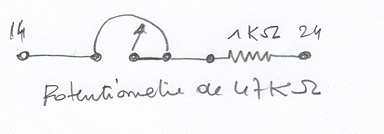 14 1KΩ 24
Potentiometre de 47KΩ